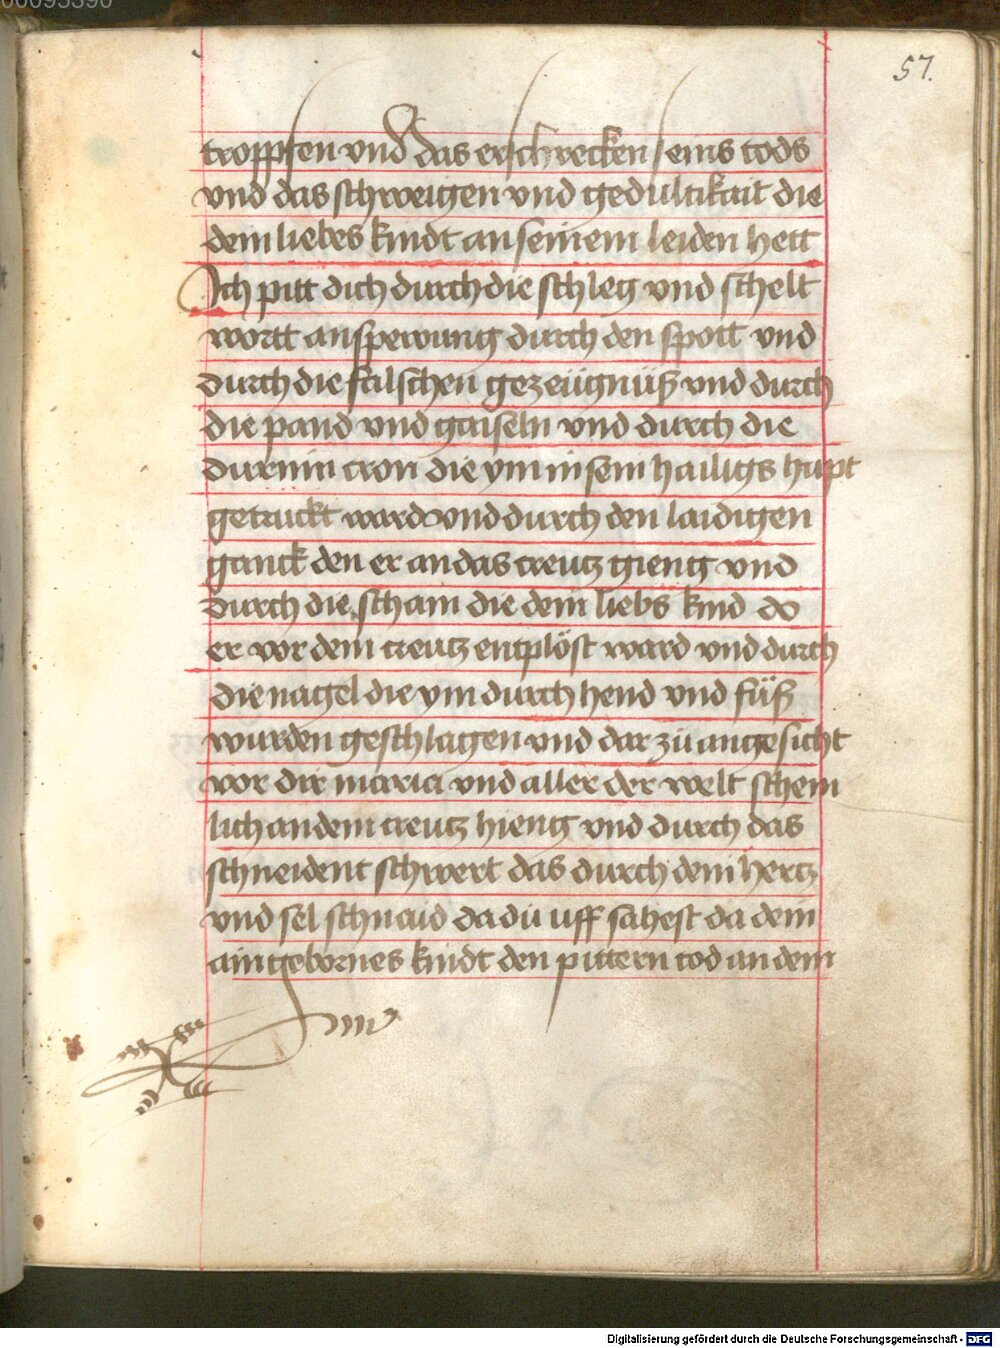 00095390
57.
tropffen vnd das erschrecken seins tods
vnd das schweigen vnd gedultikait die
dein liebes kindt an seinem leiden hett
Ich pitt dich durch die schleg vnd schelt
wortt anspewung durch den spott vnd
durch die falschen gezeügnüß vnd durch
die pand vnd gaiseln vnd durch die
durnin cron die ym in sein hailigs hapt
getruckt ward vnd durch den laidigen
ganck den er an das creutz gieng vnd
durch die scham die dein liebs kind do
er vor dem creutz entplöst ward vnd durch
die nagel die ym durch hend vnd füß
wurden geschlagen vnd dar zü angesicht
vor dir maria vnd aller der welt schem
lich an dem creutz hieng vnd durch das
schneident schwert das durch dein hertz
vnd sel schnaid da dü uff sahest da dein
aingebornes kindt den pittern tod an dem
Digitalisierung gefördert durch die Deutsche Forschungsgemeinschaft - DFG